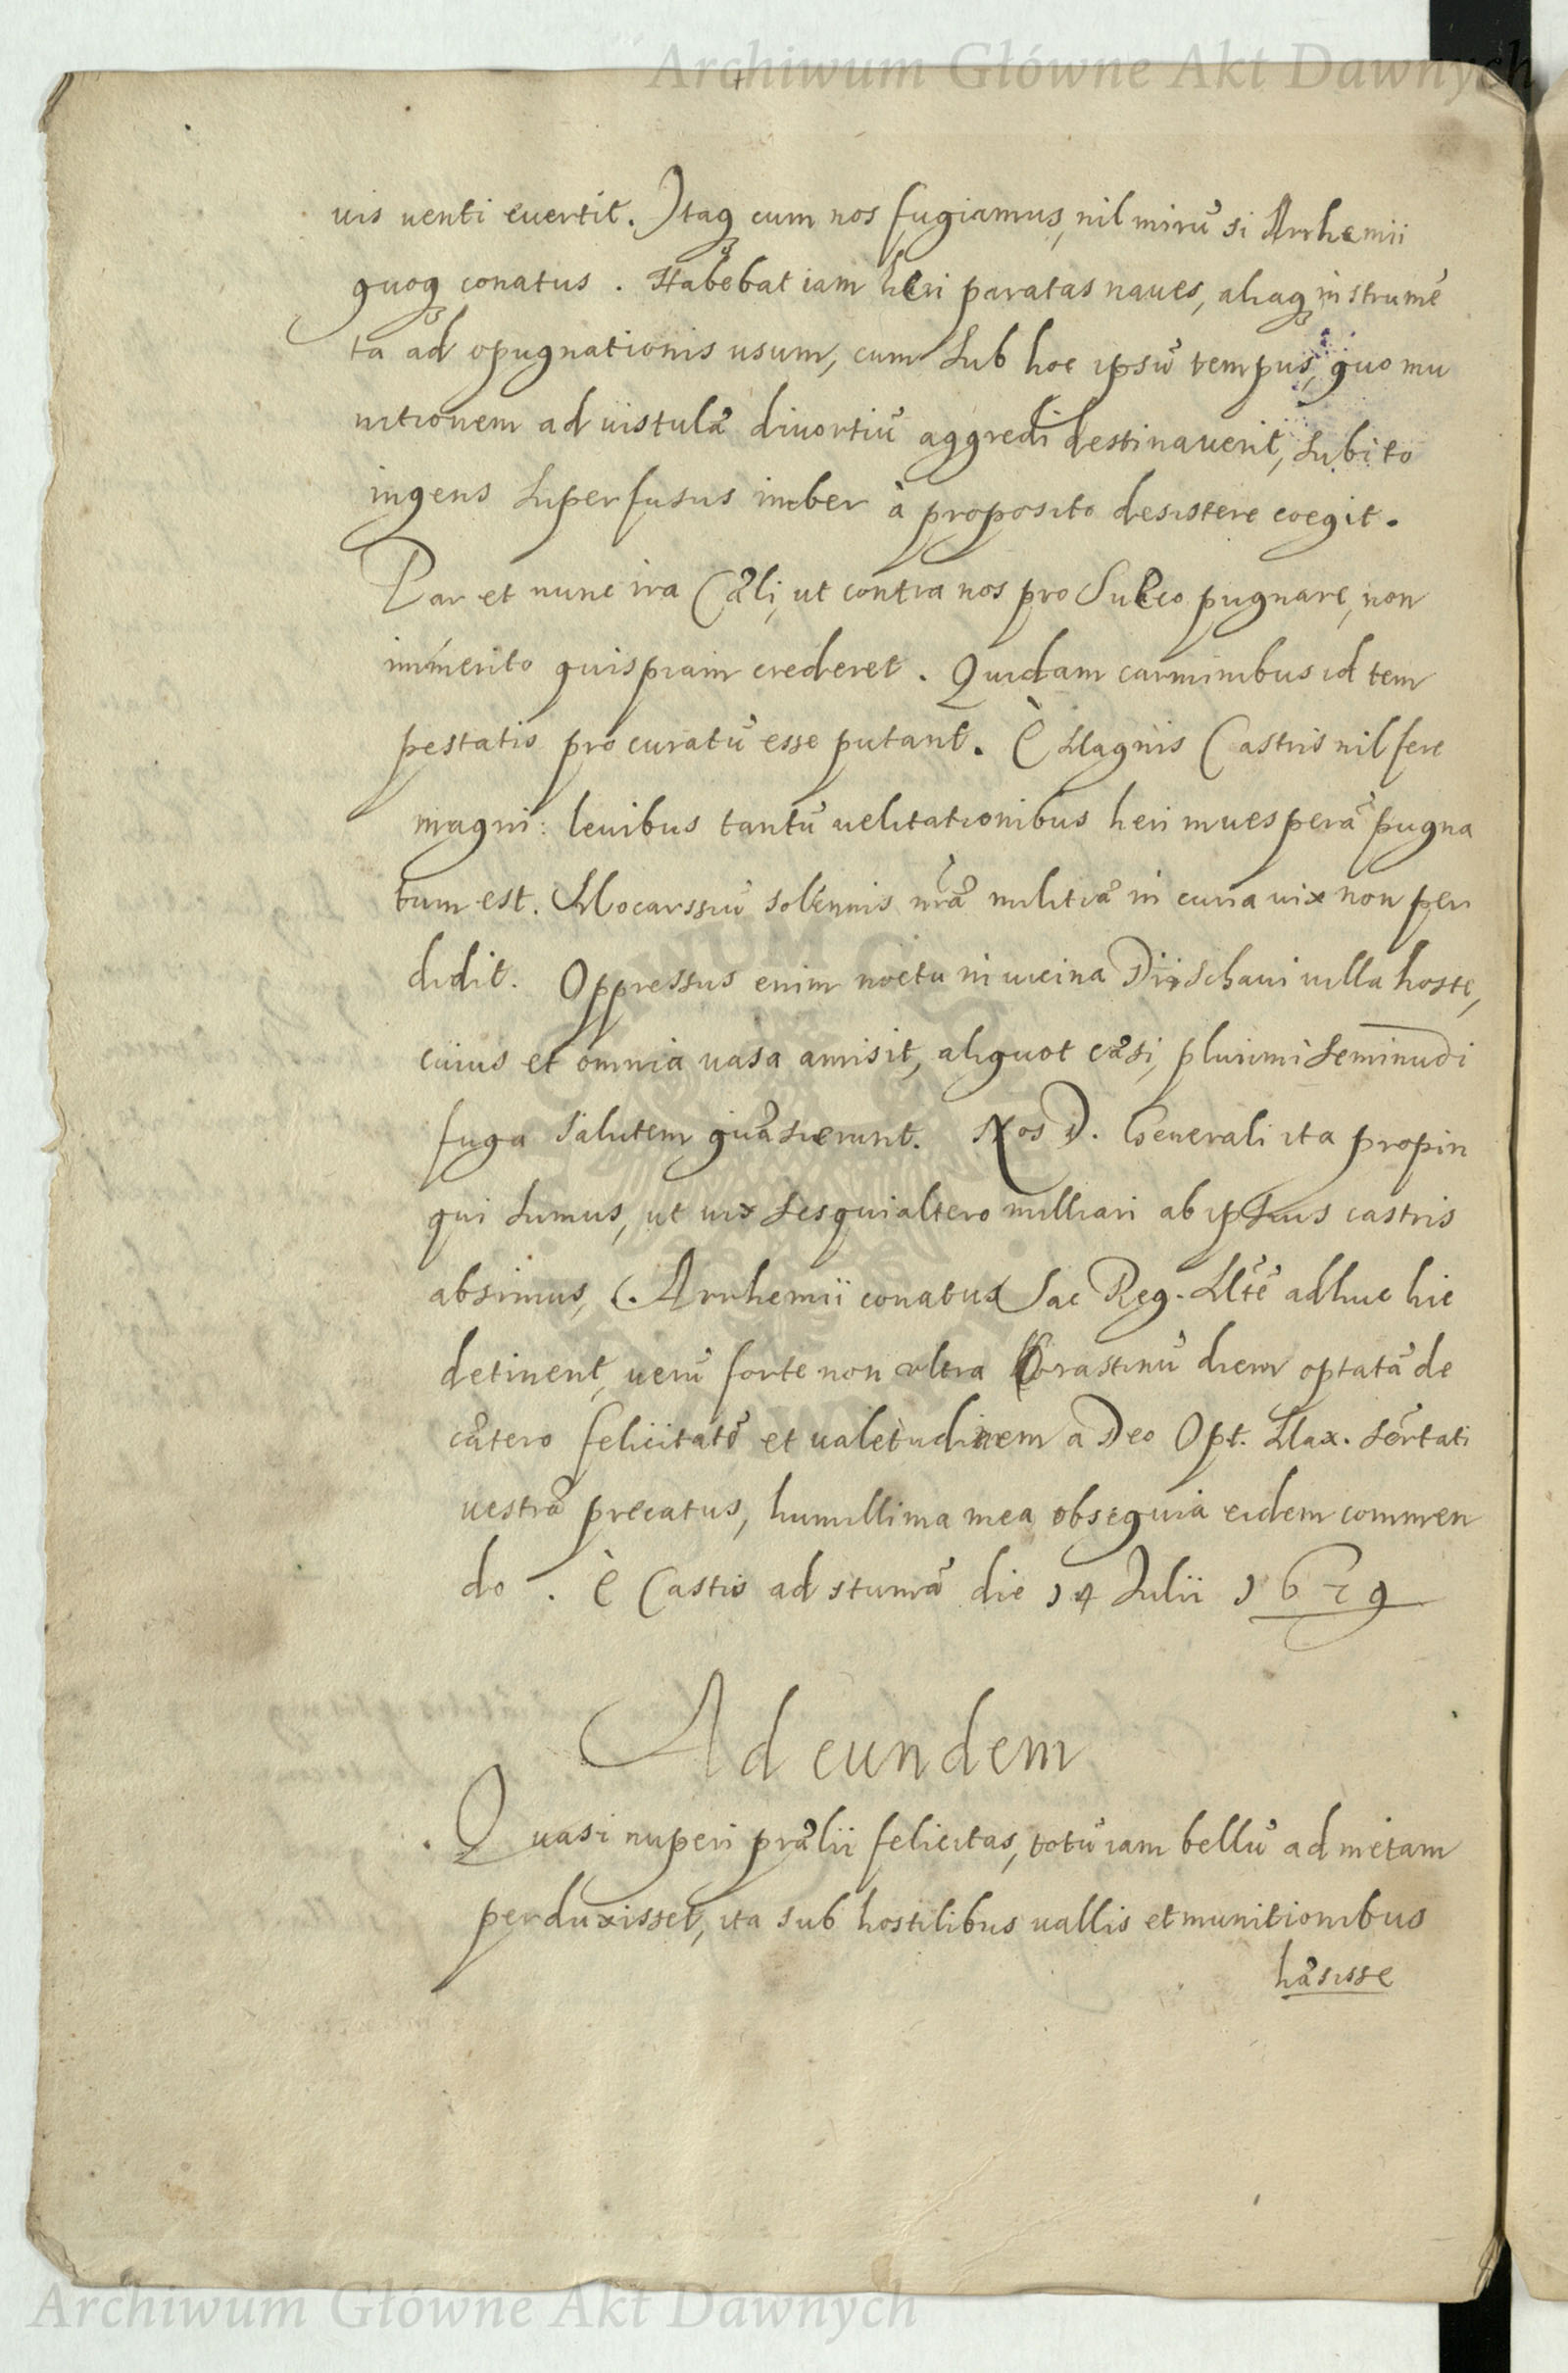 Archiwum Główne Akt Dawnych
uis uenti euertit. Itaq; cum nos fugiamus, nil mirũ si Arrhemii
quoq; conatus. Habebat iam heri paratas naues, aliaq; instrumẽ
ta ad opugnationis usum, cum sub hoc ipsũ tempus, quo mu
nitionem ad uistulã diuortiũ aggredi destinauerit, subito
ingens superfusus imber à proposito desistere coegit.
Par et nunc ira Cæli, ut contra nos pro Sueco pugnare, non
immerito quispiam crederet. Quidam carminibus id tem
pestatis procuratũ esse putant. È Magnis Castris nil fere
magni: leuibus tantũ uelitationibus heri in uesperã pugna
tum est. Mocarssiũ solennis nrã militiã in curia uix non per
didit. Oppressus enim noctu in uicina Dirschaui uilla hoste,
cuius et omnia uasa amisit, aliquot cæsi, plurimi seminudi
fuga salutem quæsierunt. Nos D. Generali ita propin
qui sumus, ut uix sesquialtero milliari ab ipsius castris
absimus, Arrhemii conatus Sac Reg. Mtẽ adhuc hic
detinent, uerũ forte non ultra Crastinũ diem optatã de
cætero felicitatẽ et ualetudinem a Deo Opt. Max. Sertati
uestræ precatus, humillima mea obsequia eidem commen
do. È Castis ad stumã die 14 Julii 1629
Ad eundem
Quasi nuperi prælii felicitas, totũ iam bellũ ad metam
perduxisset, ita sub hostilibus uallis et munitionibus
hæsisse
Archiwum Główne Akt Dawnych